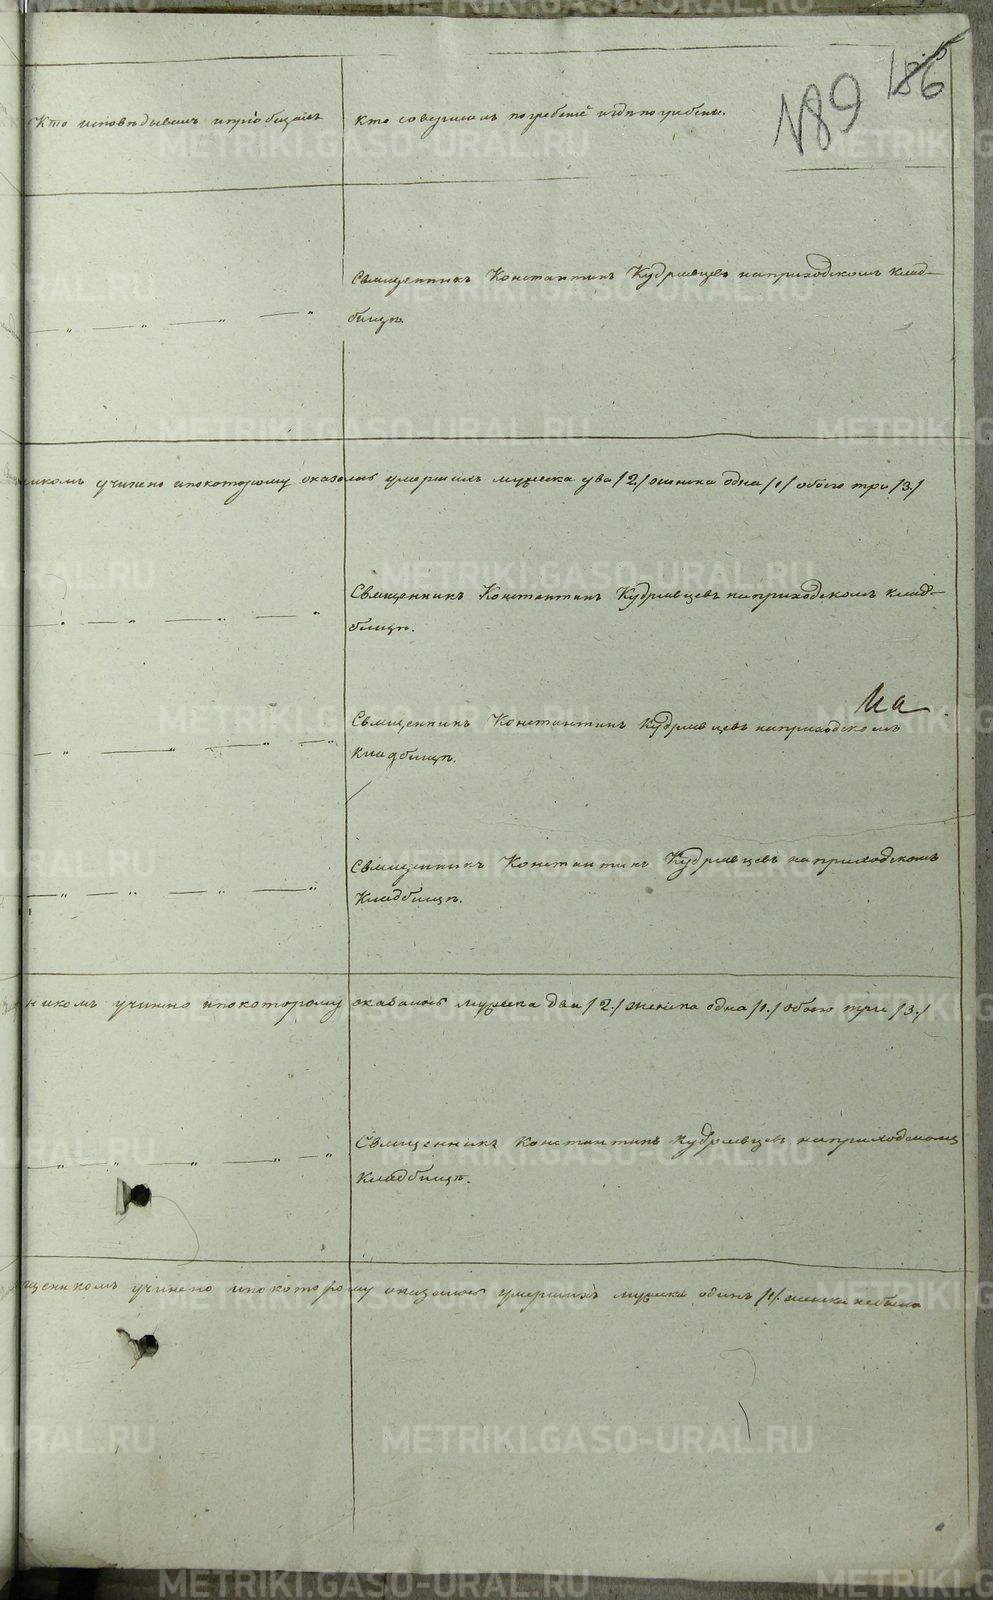 186
№89
Кто исповѣдывалъ и пріобщалъ
кто совершалъ погребеніе и гдѣ погребены.
Священникъ Константинъ Кудрявцевъ на приходскомъ клад-
бищѣ.
никомъ учинено и по которому оказалось умершихъ мужеска два /2./ женска одна /1./ обоего три /3./
Священникъ Константинъ Кудрявцевъ на приходскомъ клад-
бищѣ.
Ма
Священникъ Константинъ Кудрявцевъ на приходскомъ
кладбищѣ.
Священникъ Константинъ Кудрявцевъ на приходскомъ
кладбищѣ.
никомъ учинено и по которому оказалось мужеска два /2./ женска одна /1./ обоего три /3./
Священникъ Константинъ Кудрявцевъ на приходскомъ
кладбищѣ.
щенникомъ учинено и по которому оказалось умершихъ мужеска одинъ /1/. женска небыло
METRIKI.GASO-URAL.RU